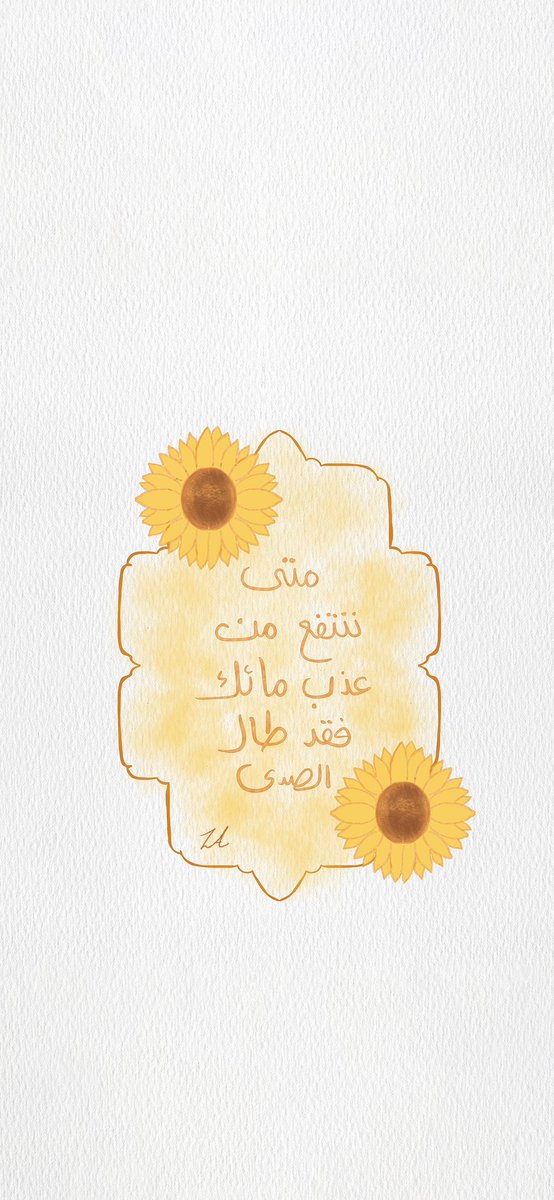 متى
ننتفع من
عذب مائك
فقد طال
الصدى
LA